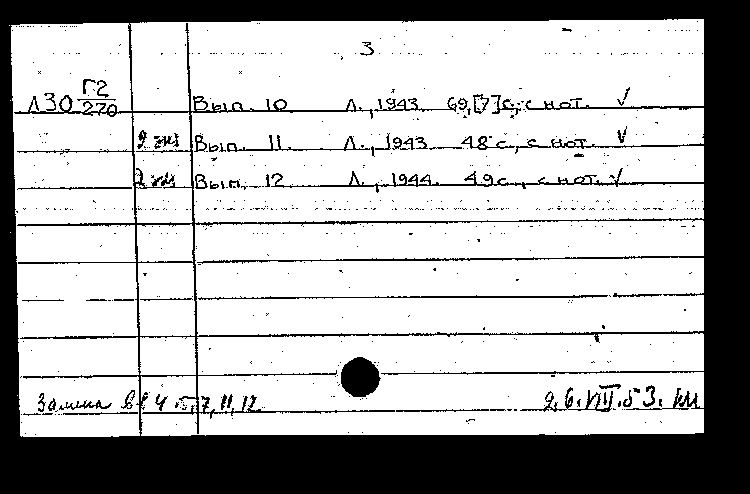 3
Л30 Г2/270 Вып. 10 Л., 1943. 69,[7]с., с нот. ✓
2 экз Вып. 11. Л., 1943 48 с., с нот. ✓
2 экз Вып. 12 Л., 1944. 49 с., с нот. ✓
Замена 4 5, 7, 11, 12
26.VIII.53.